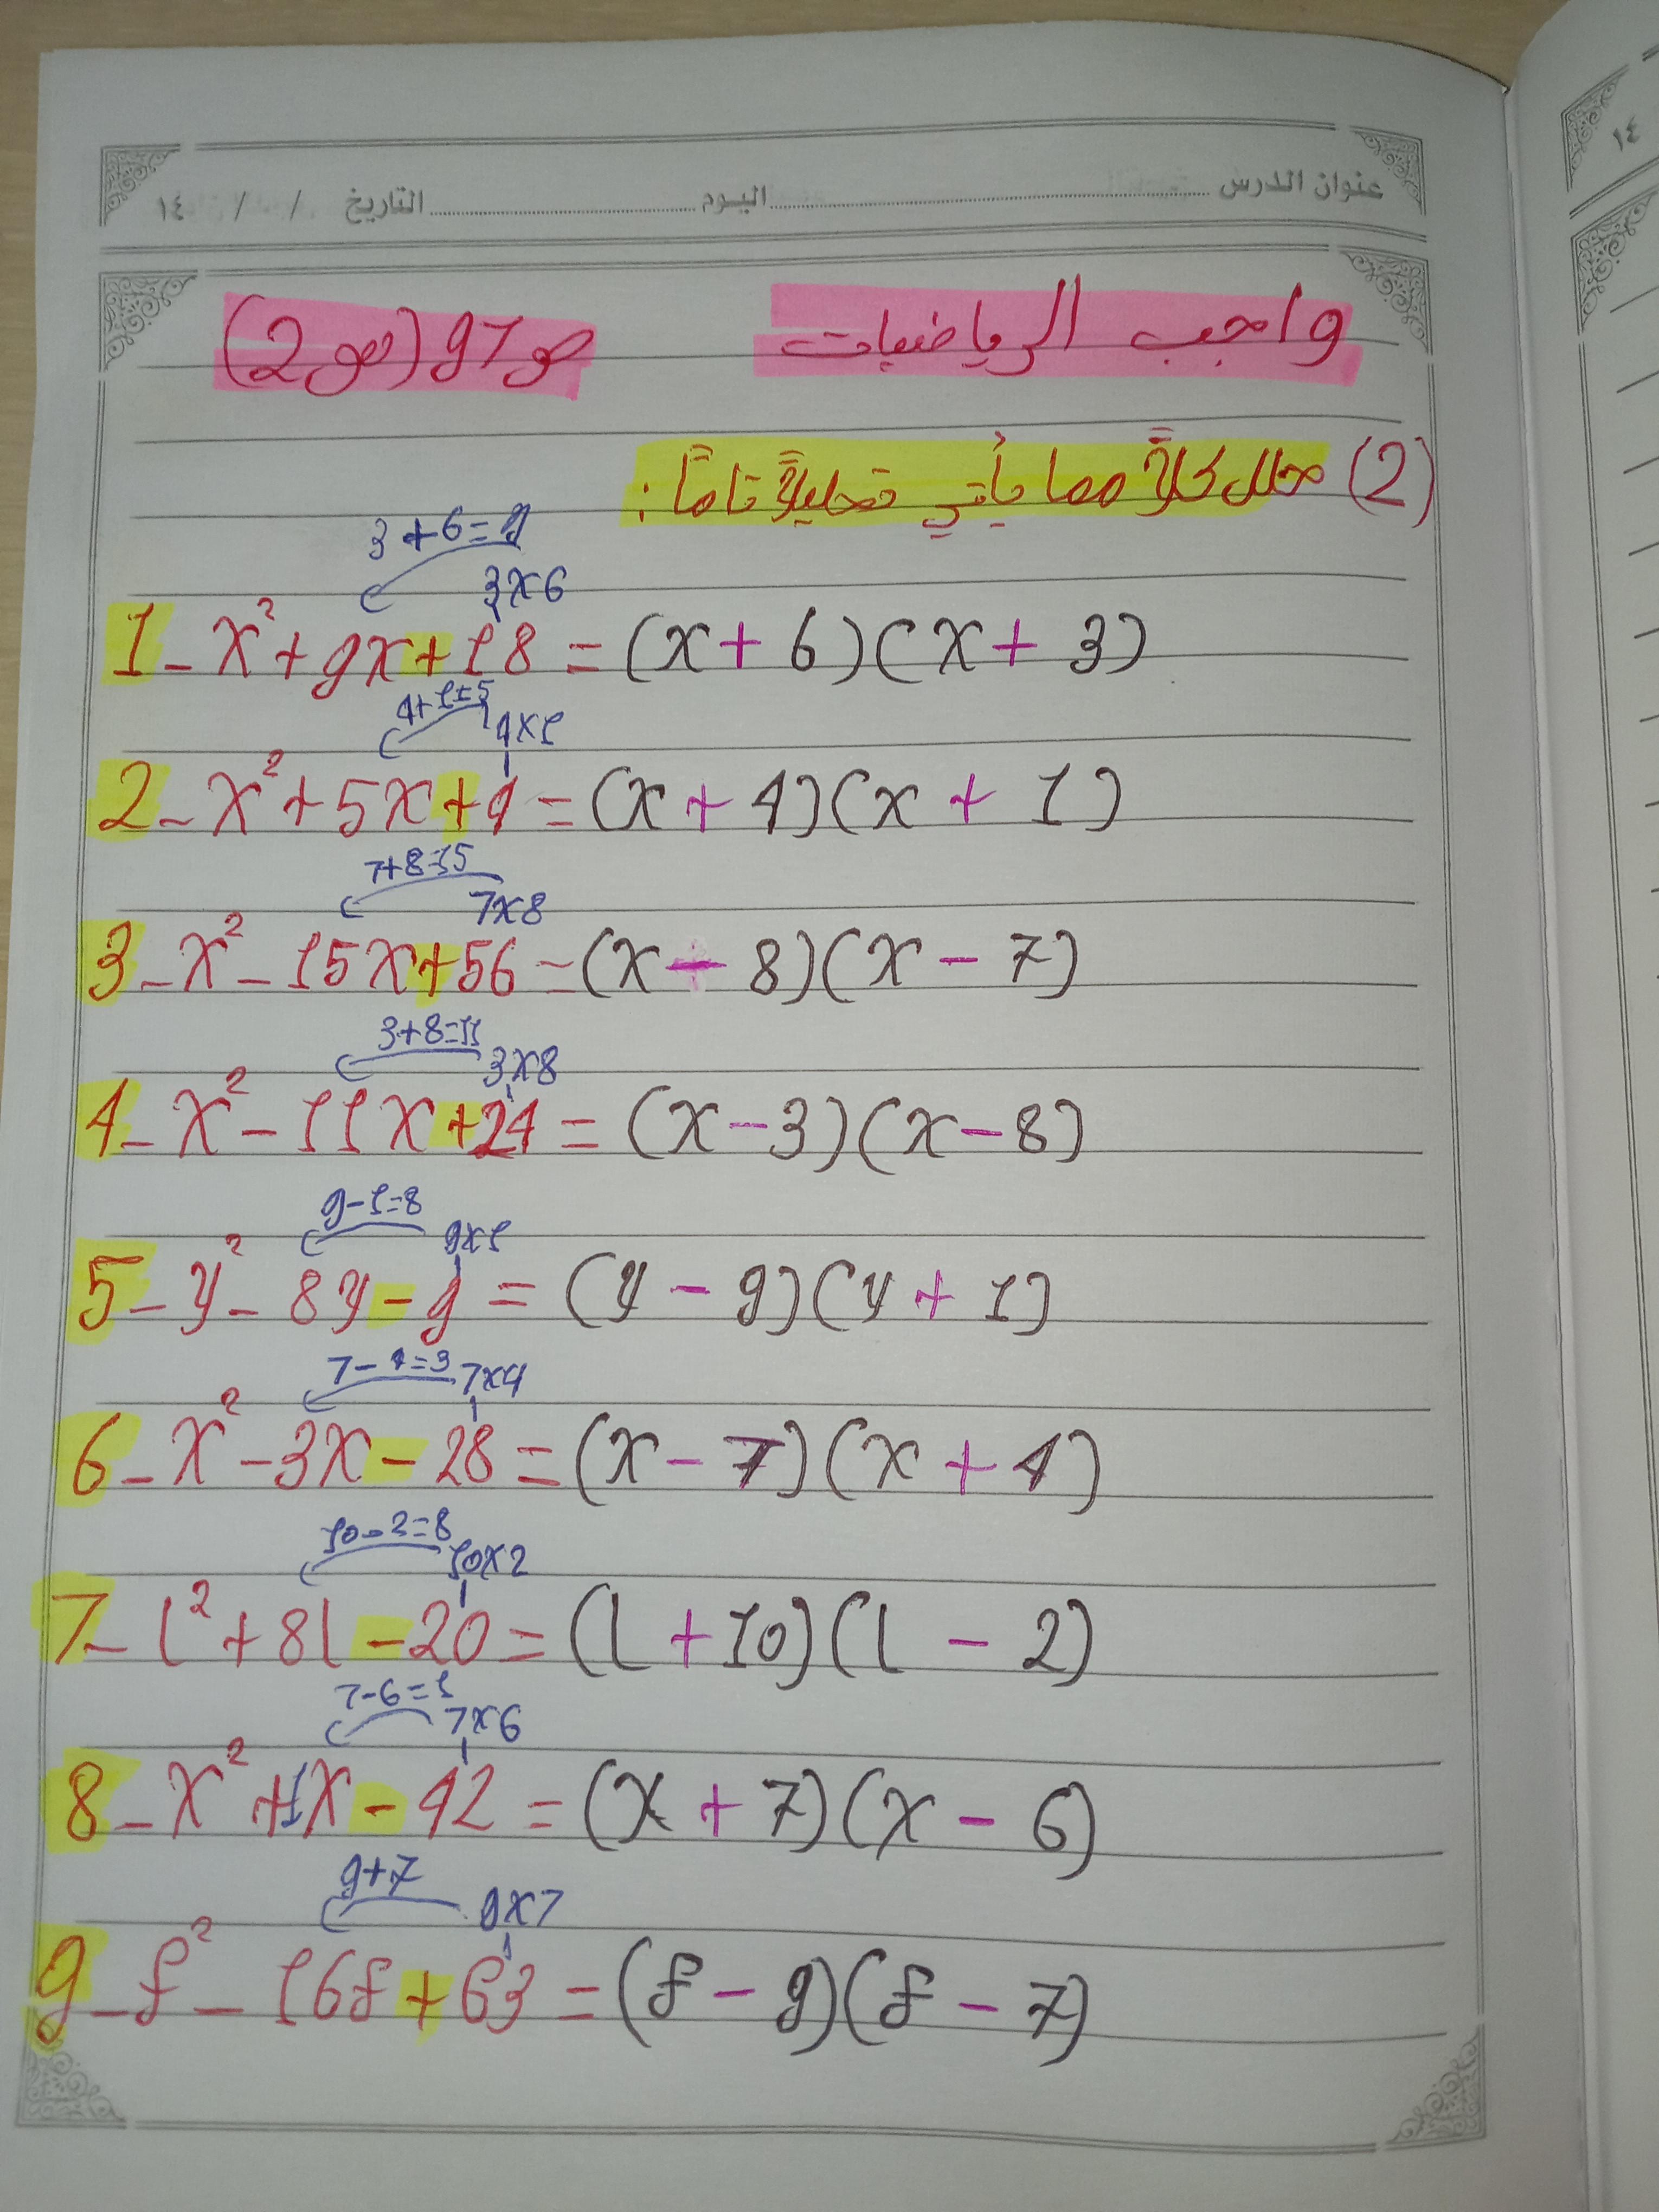 عنوان الدرس ........ اليوم ........ التاريخ / / ١٤
واجب الرياضيات ص97 (س2)
(2) حلل كلاً مما يأتي تحليلاً تاماً :
3+6=9
3x6
1- x²+9x+18 = (x+6)(x+3)
4+1=5
4x1
2- x²+5x+4 = (x+4)(x+1)
7+8=15
7x8
3- x²-15x+56 = (x-8)(x-7)
3+8=11
3x8
4- x²-11x+24 = (x-3)(x-8)
9-1=8
9x1
5- y²-8y-9 = (y-9)(y+1)
7-4=3
7x4
6- x²-3x-28 = (x-7)(x+4)
10-2=8
10x2
7- l²+8l-20 = (l+10)(l-2)
7-6=1
7x6
8- x²+1x-42 = (x+7)(x-6)
9+7
9x7
9- f²-16f+63 = (f-9)(f-7)
١٤